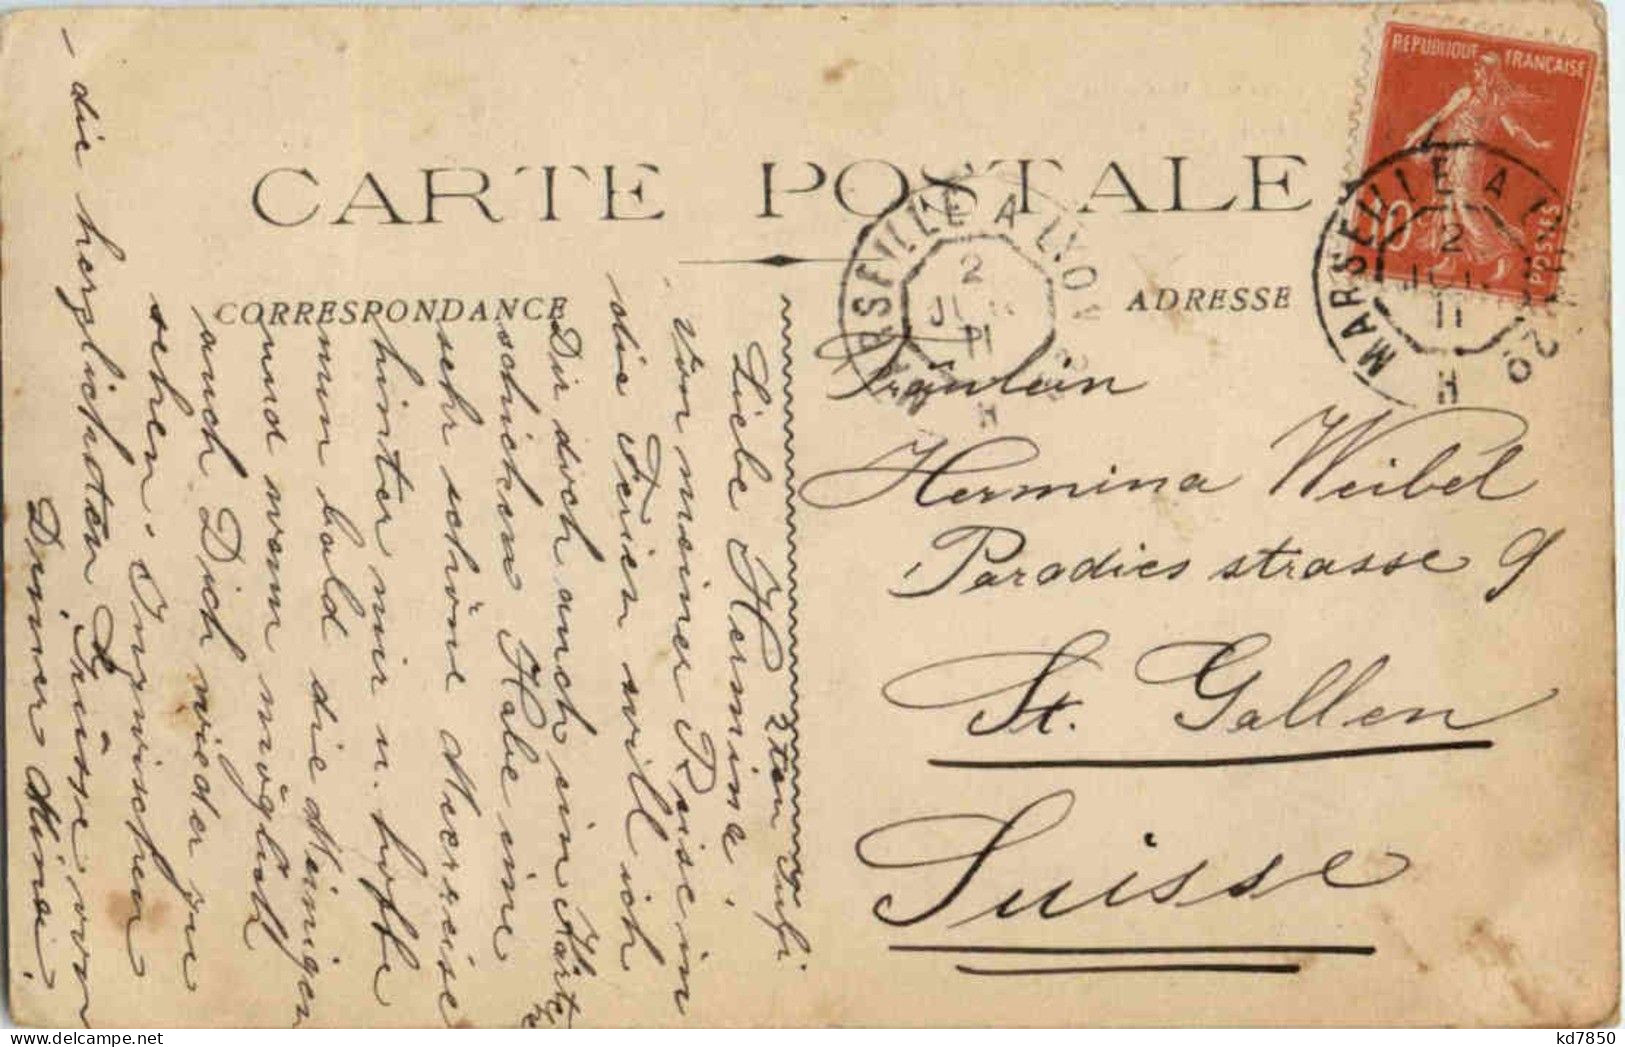 CARTE POSTALE
CORRESPONDANCE
ADRESSE
REPUBLIQUE FRANÇAISE
10
POSTES
MARSEILLE A LYON
2
11
MARSEILLE A L
2
JUIL
11
2ten
Liebe Hermina!
Von meiner Reise in
die Ferien will ich
Dir doch auch ein Kärtchen
schicken. Habe eine
sehr schöne Meerreise
hinter mir u. hoffe
nun bald die Meinigen
und wenn möglich
auch Dich wieder zu
sehen. Inzwischen
- die herzlichsten Grüsse von
Deiner Mina.
Fräulein
Hermina Weibel
Paradiesstrasse 9
St. Gallen
Suisse
kd7850